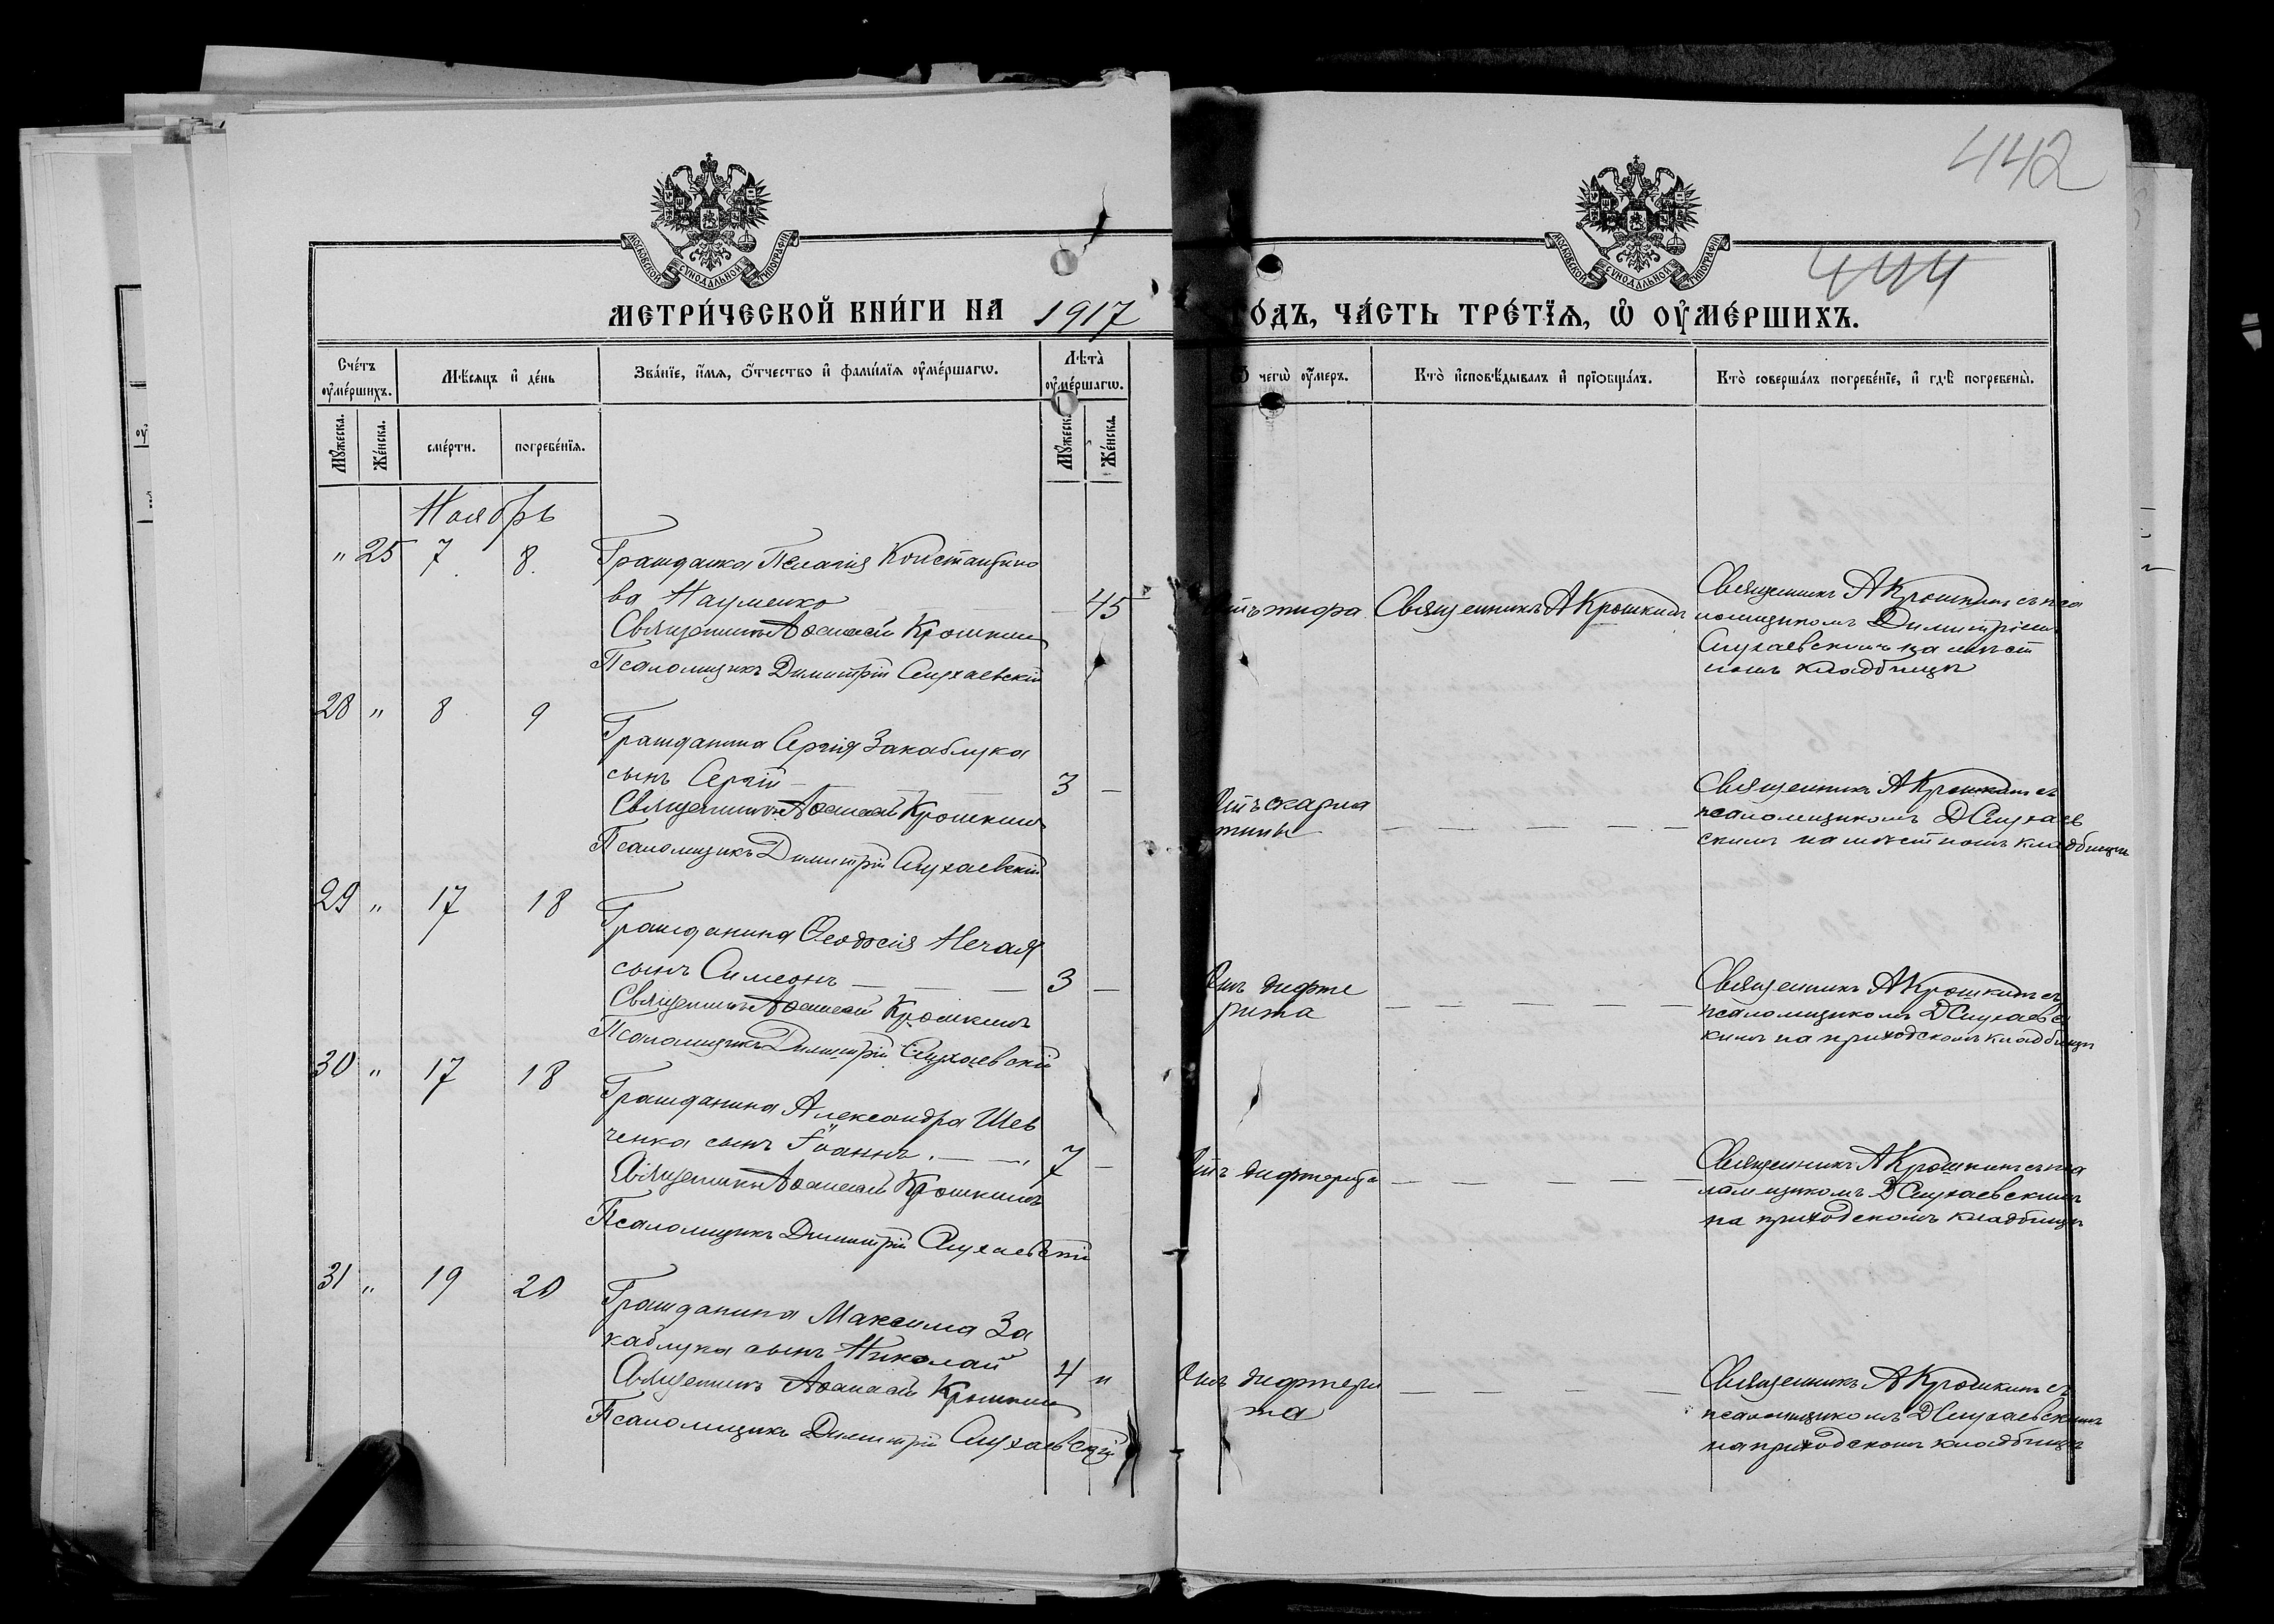 442
444
МОСКОВСКОЙ СѴНОДАЛЬНОЙ ТИПОГРАФІИ
МОСКОВСКОЙ СѴНОДАЛЬНОЙ ТИПОГРАФІИ
МЕТРИ́ЧЕСКОЙ КНИ́ГИ НА 1917
ГО́ДЪ, ЧА́СТЬ ТРЕ́ТЇѦ, Ѡ҆ ОУ҆МЕ́РШИХЪ.
Сче́тъ оу҆ме́ршихъ.
Мѣ́сяцъ и҆ де́нь
Зва́нїе, и҆́мѧ, ѻ҆́тчество и҆ фами́лїѧ оу҆ме́ршагѡ.
Лѣ́та оу҆ме́ршагѡ.
Ѿ чегѡ̀ оу҆́меръ.
Кто̀ и҆сповѣ́дывалъ и҆ прїѡбща́лъ.
Кто̀ соверша́лъ погребе́нїе, и҆ гдѣ̀ погребены̀.
Мꙋ́жеска.
Же́нска.
сме́рти.
погребе́нїѧ.
Мꙋ́жеска.
Же́нска.
Ноябрь
" 25 7 8. Гражданка Пелагія Константино
ва Науменко — 45
Священникъ Аѳанасій Крошкинъ
Псаломщикъ Димитрій Слухаевскій
тъ тифа Священникъ А Крошкинъ
Священникъ А Крошкинъ съ пса
ломщикомъ Димитріемъ
Слухаевскимъ на мѣст
номъ кладбищѣ
28 " 8 9 Гражданина Сергія Закаблука
сынъ Сергій — 3 —
Священникъ Аѳанасій Крошкинъ
Псаломщикъ Димитрій Слухаевскій
Отъ скарла
тины — — — —
Священникъ А Крошкинъ съ
псаломщикомъ Д Слухаев
скимъ на мѣстномъ кладбищѣ
29 " 17 18 Гражданина Ѳеодосія Нечая
сынъ Симеонъ — — — 3 —
Священникъ Аѳанасій Крошкинъ
Псаломщикъ Димитрій Слухаевскій
Отъ дифте
рита — — — —
Священникъ А Крошкинъ съ
псаломщикомъ Д Слухаевс
кимъ на приходскомъ кладбищѣ
30 " 17 18 Гражданина Александра Шев
ченка сынъ Іоаннъ. — — 7 —
Священникъ Аѳанасій Крошкинъ
Псаломщикъ Димитрій Слухаевскій
Отъ дифтерита — — — —
Священникъ А Крошкинъ съ пса
ломщикомъ Д Слухаевскимъ
на приходскомъ кладбищѣ
31 " 19 20 Гражданина Максима За
каблука сынъ Николай 4 "
Священникъ Аѳанасій Крошкинъ
Псаломщикъ Димитрій Слухаевскій
Отъ дифтери
та — — — —
Священникъ А Крошкинъ съ
псаломщикомъ Д Слухаевскимъ
на приходскомъ кладбищѣ